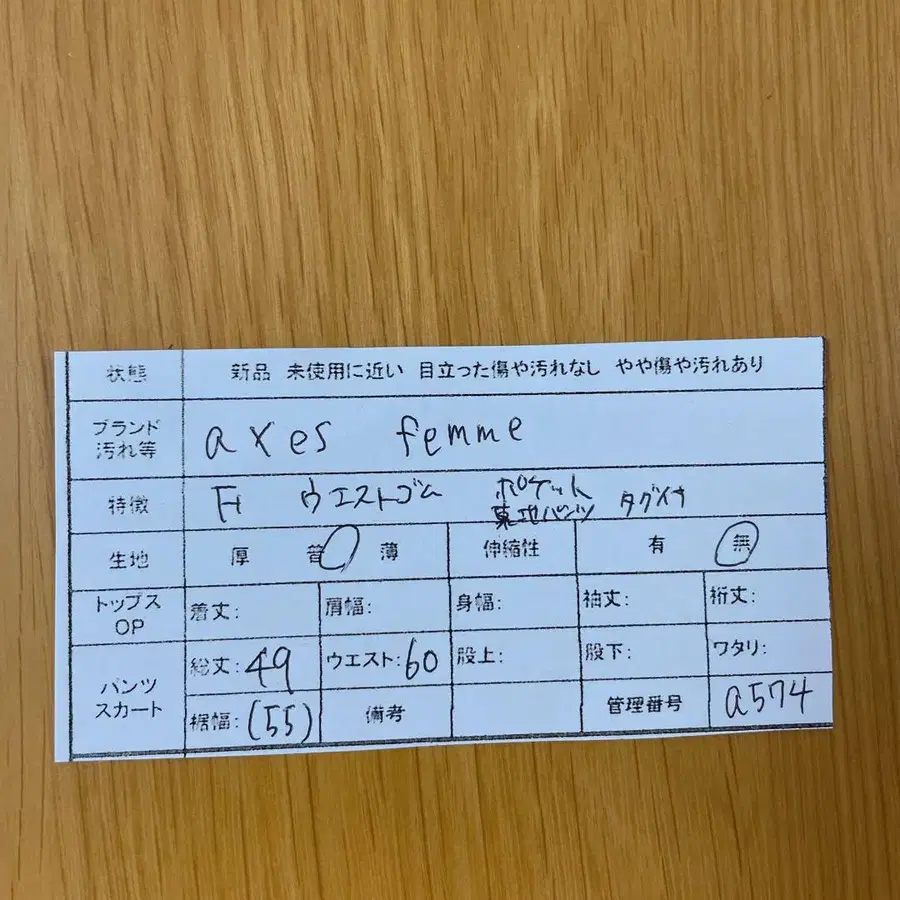 状態 新品 未使用に近い 目立った傷や汚れなし やや傷や汚れあり
ブランド
汚れ等 axes femme
特徴 F ウエストゴム ポケット
裏地パンツ タグ付き
生地 厚 普 薄 伸縮性 有 無
トップス
OP 着丈: 肩幅: 身幅: 袖丈: 裄丈:
パンツ
スカート 総丈:49 ウエスト:60 股上: 股下: ワタリ:
裾幅:(55) 備考 管理番号 a574